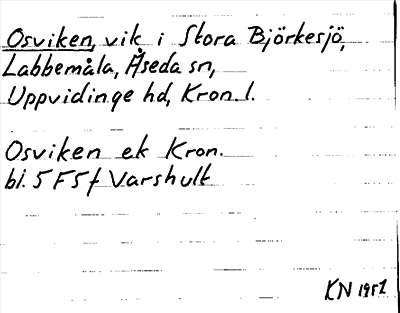 Osviken, vik i Stora Björkesjö,
Labbemåla, Åseda sn,
Uppvidinge hd, Kron. l.
Osviken ek Kron.
bl. 5F5f Varshult
KN 1951